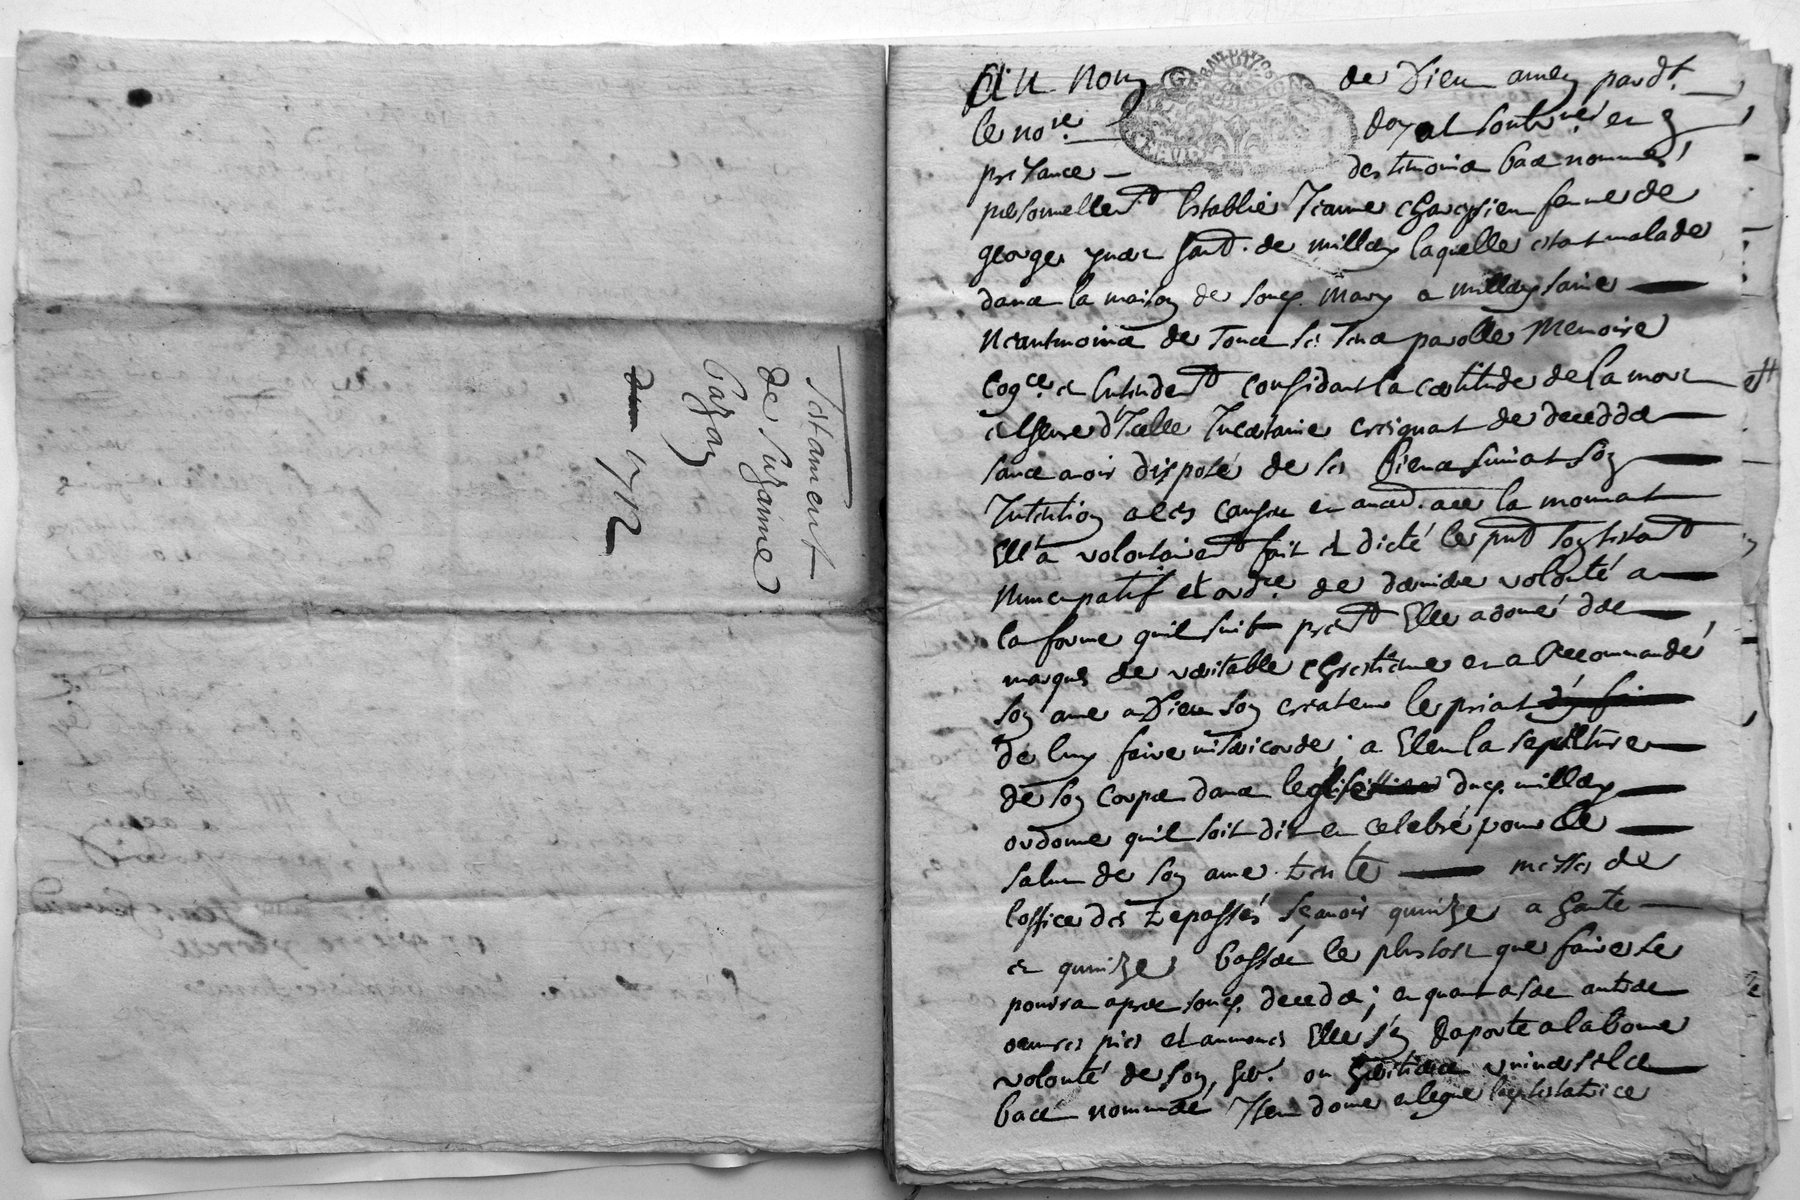 Testament
de Suzanne
Cazas
1712
Au Nom de Dieu amen pardt.
le nore. Royal soubzné en
presance des temoins bas nommés
personellent establie Jeanne femme de
george de millau laquelle estant malade
dans la maison de son mary a millau saine
neantmoins de tous ses sens parolle Memoire
cogce. et entendent considant la certitude de la mort
et lheure d'Icelle Incertaine creignant de decedder
sans avoir disposé de ses biens suivant son
Intention a ces causes la mouvant
Elle a volontairent fait et dicté le pnt son testant
Nuncupatif et ordre. de derniere volonté a
la forme quil suit Elle a doné des
marques de veritable chrestiene et a Recommandé
son ame a Dieu son createur le priant
de luy faire misericorde; a Eleu la sepulture
de son corps dans leglise du millau
ordonne quil soit dit et celebré pour le
salut de son ame trente messes de
loffice des trepassés sçavoir quinze a haute
et quinze basses le plustost que faire se
pourra apres son deceds; et quant a ses autres
oeuvres pies et aumones Elle s'en raporte a la bone
volonté de son her. ou heritiers universels
bas nommés Item done et legue la testatrice